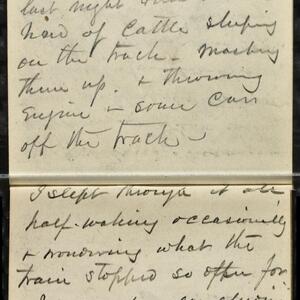 last night
head of Cattle sleeping
on the track - mashing
them up. & throwing
Engine & some Cars
off the track -
I slept through it all
half-waking occasionally
& wondering what the
train stopped so often for